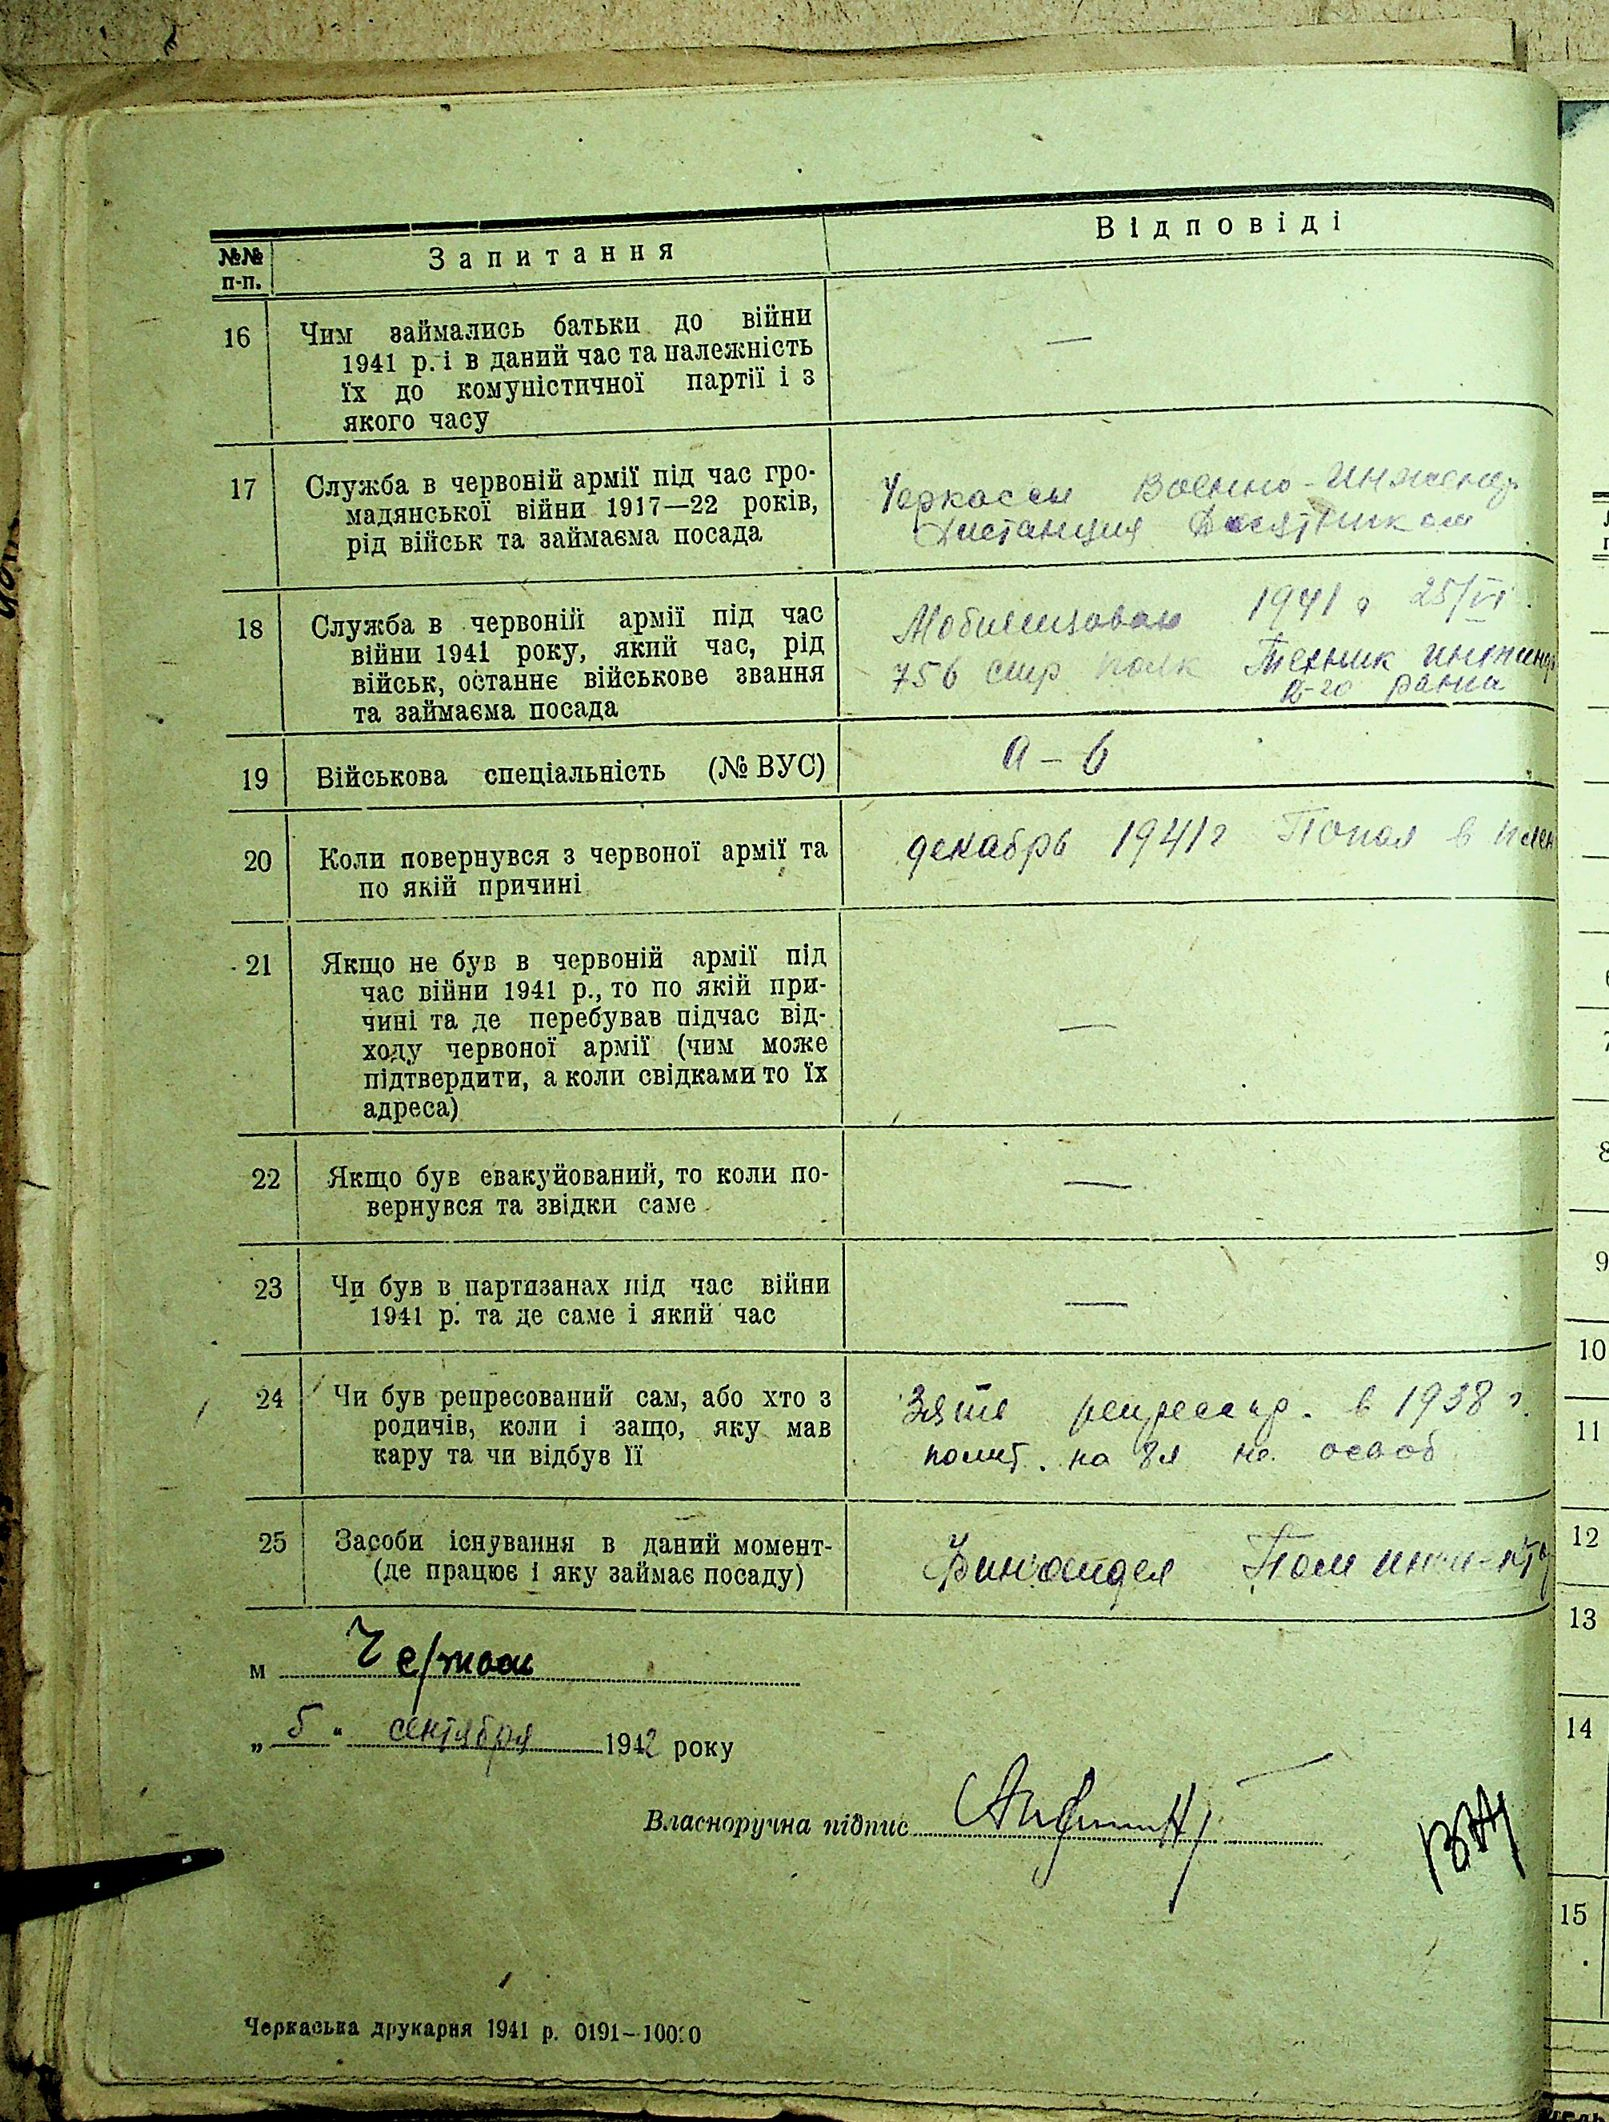 №№ п-п. Запитання Відповіді
16 Чим займались батьки до війни —
1941 р. і в даний час та належність
їх до комуністичної партії і з
якого часу
17 Служба в червоній армії під час гро- Черкассы Военно-Инженер.
мадянської війни 1917—22 років, Дистанция Десятником
рід військ та займаєма посада
18 Служба в червоній армії під час Мобилизован 1941 г 25/VI.
війни 1941 року, який час, рід 756 стр полк Техник интенд
військ, останнє військове звання 2-го ранга
та займаєма посада
19 Військова спеціальність (№ ВУС) а – 6
20 Коли повернувся з червоної армії та декабрь 1941 г Попал в плен
по якій причині
21 Якщо не був в червоній армії під —
час війни 1941 р., то по якій при-
чині та де перебував підчас від-
ходу червоної армії (чим може
підтвердити, а коли свідками то їх
адреса)
22 Якщо був евакуйований, то коли по- —
вернувся та звідки саме
23 Чи був в партизанах під час війни —
1941 р. та де саме і який час
24 Чи був репресований сам, або хто з Зять репрессир. в 1938 г.
родичів, коли і защо, яку мав полит. на 8 л не освоб
кару та чи відбув її
25 Засоби існування в даний момент- Финотдел Пом
(де працює і яку займає посаду)
м Черкассы
„ 5 “ сентября 1942 року
Власноручна підпис
Черкаська друкарня 1941 р. 0191—10000
6
7
8
9
10
11
12
13
14
15